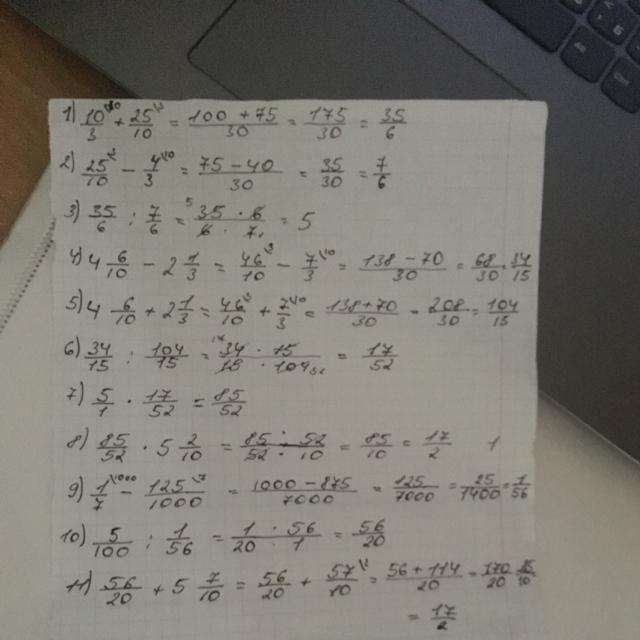 1) 10/3 + 25/10 = (100 + 75)/30 = 175/30 = 35/6
2) 25/10 - 4/3 = (75 - 40)/30 = 35/30 = 7/6
3) 35/6 : 7/6 = (35 · 6)/(6 · 7) = 5
4) 4 6/10 - 2 1/3 = 46/10 - 7/3 = (138 - 70)/30 = 68/30 = 34/15
5) 4 6/10 + 2 1/3 = 46/10 + 7/3 = (138 + 70)/30 = 208/30 = 104/15
6) 34/15 : 104/15 = (34 · 15)/(15 · 104) = 17/52
7) 5/1 · 17/52 = 85/52
8) 85/52 · 5 2/10 = (85 · 52)/(52 · 10) = 85/10 = 17/2
9) 1/7 - 125/1000 = (1000 - 875)/7000 = 125/7000 = 25/1400 = 1/56
10) 5/100 : 1/56 = (1 · 56)/(20 · 1) = 56/20
11) 56/20 + 5 7/10 = 56/20 + 57/10 = (56 + 114)/20 = 170/20
= 17/2